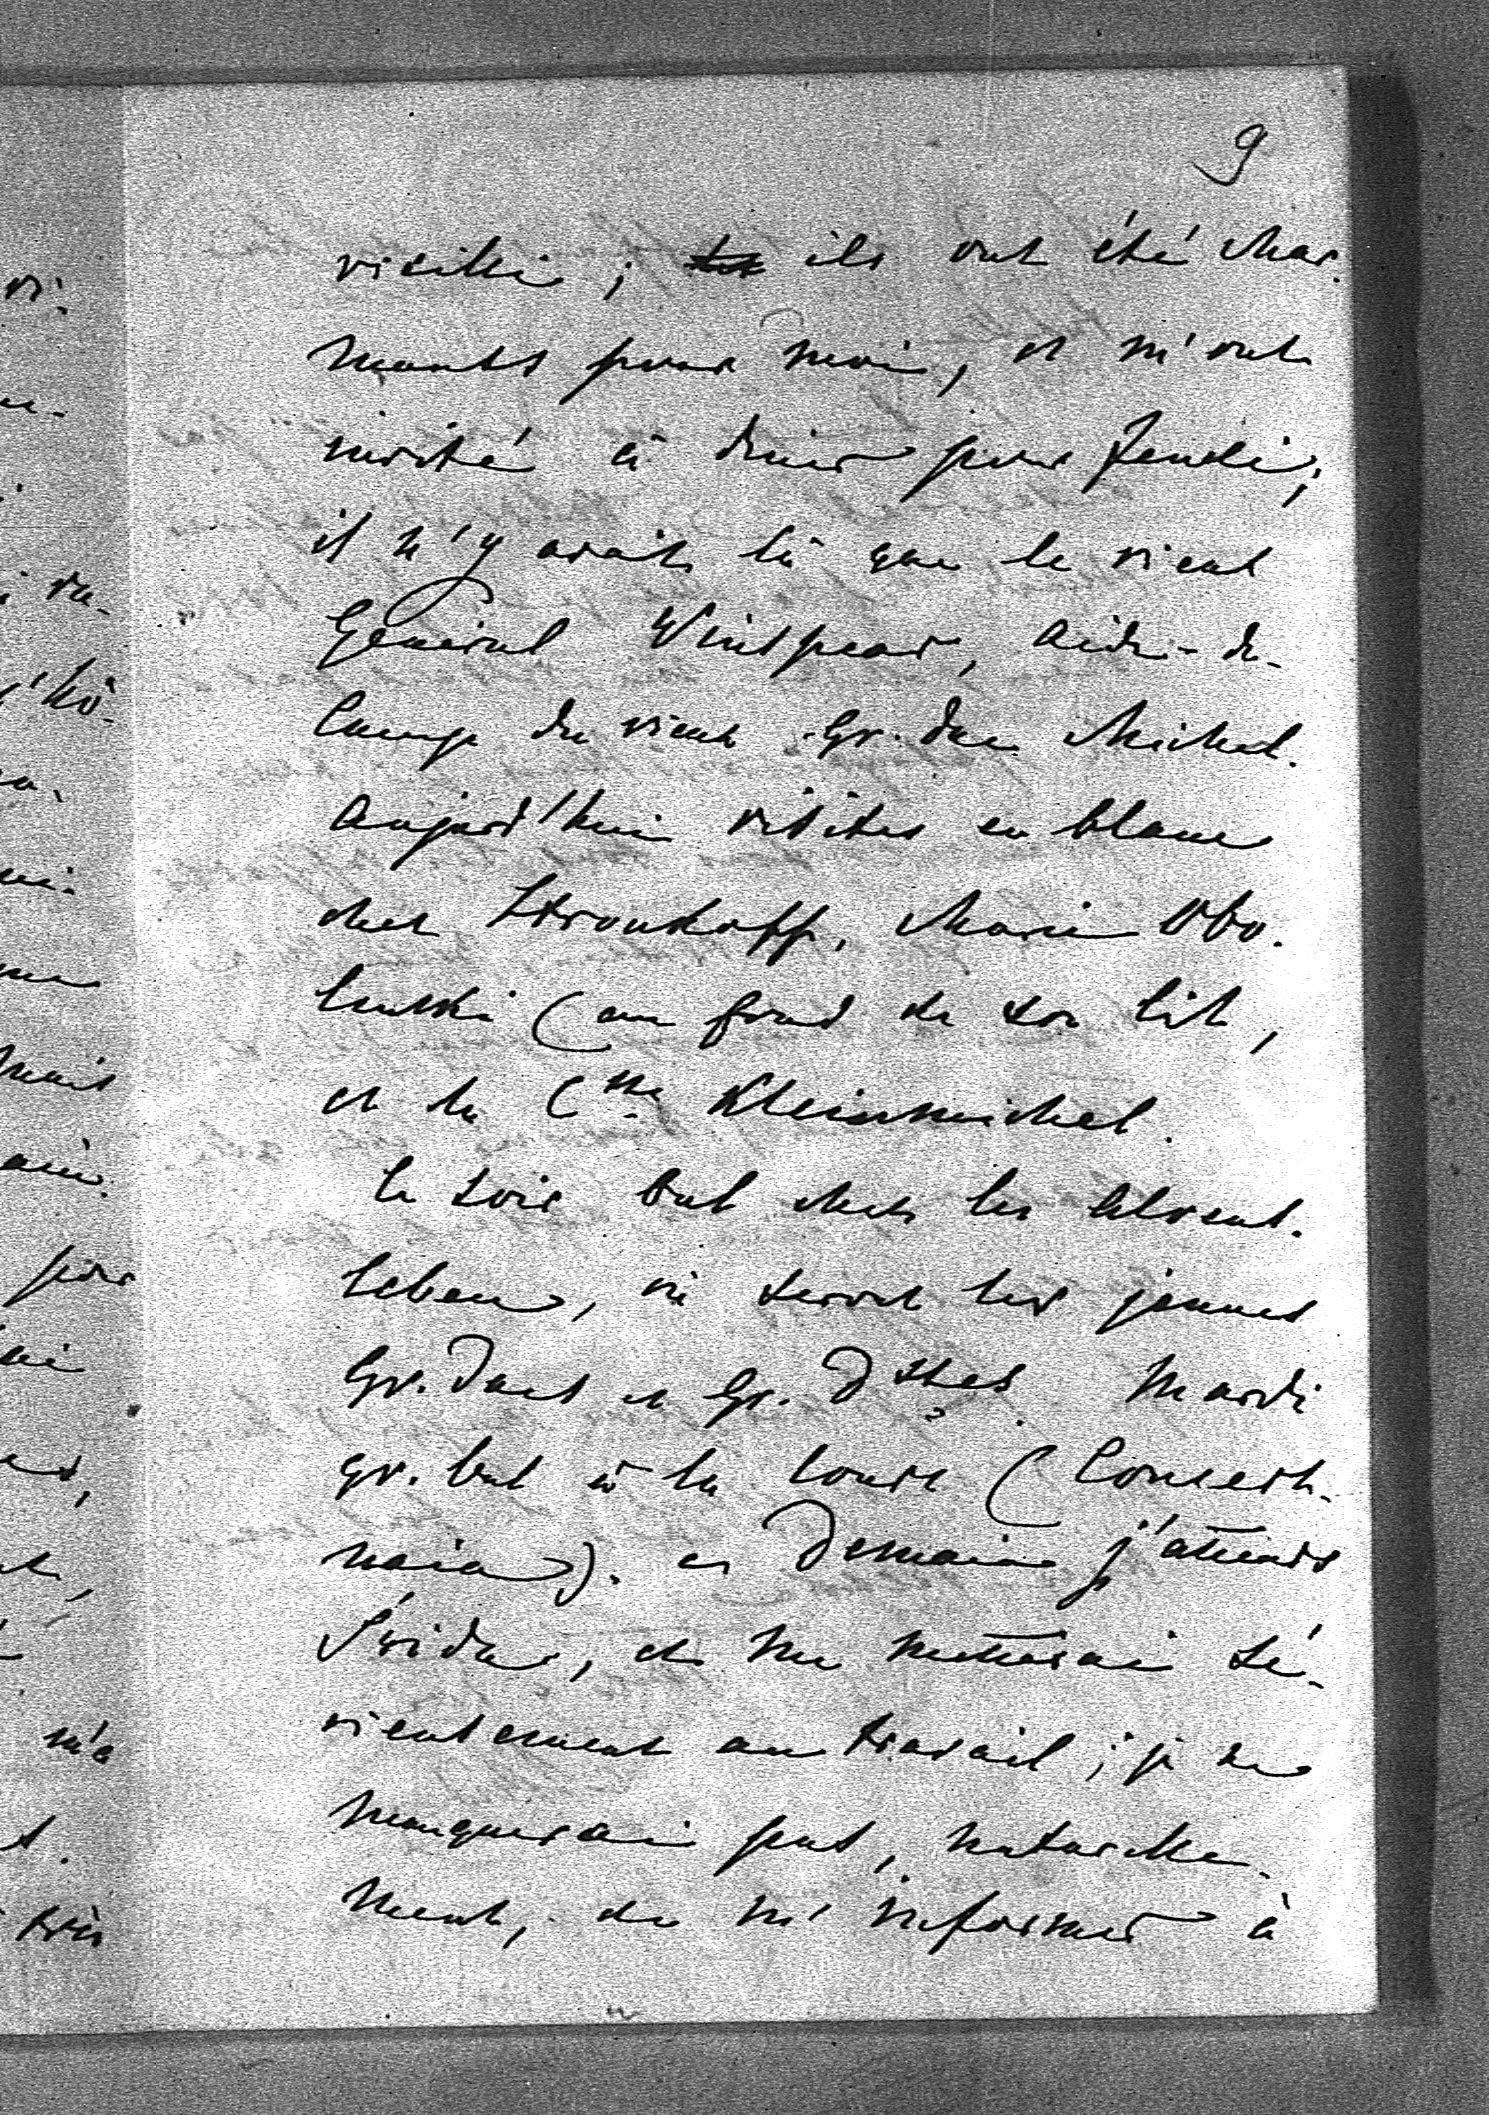 9
vieilli ; ils ont été char-
mants pour moi, et m'ont
invité à diner pour Jeudi ;
il n'y avait là que le vieux
Général Winspear, aide-de-
Camp du vieux Gr. duc Michel.
Aujourd'hui visites en blanc
chez Stroukoff, Marie Obo-
lenski (au fond de son lit,
et la Csse Kleinmichel.
Le soir bal chez les Alvens-
leben, où seront les jeunes
Gr. Ducs et Gr. Dsses. Mardi
gr. bal à la Cour (Concert-
naia). et Demain j'attends
, et me mettrai sé-
rieusement au travail ; je ne
manquerai pas, naturelle-
ment, de m'informer à